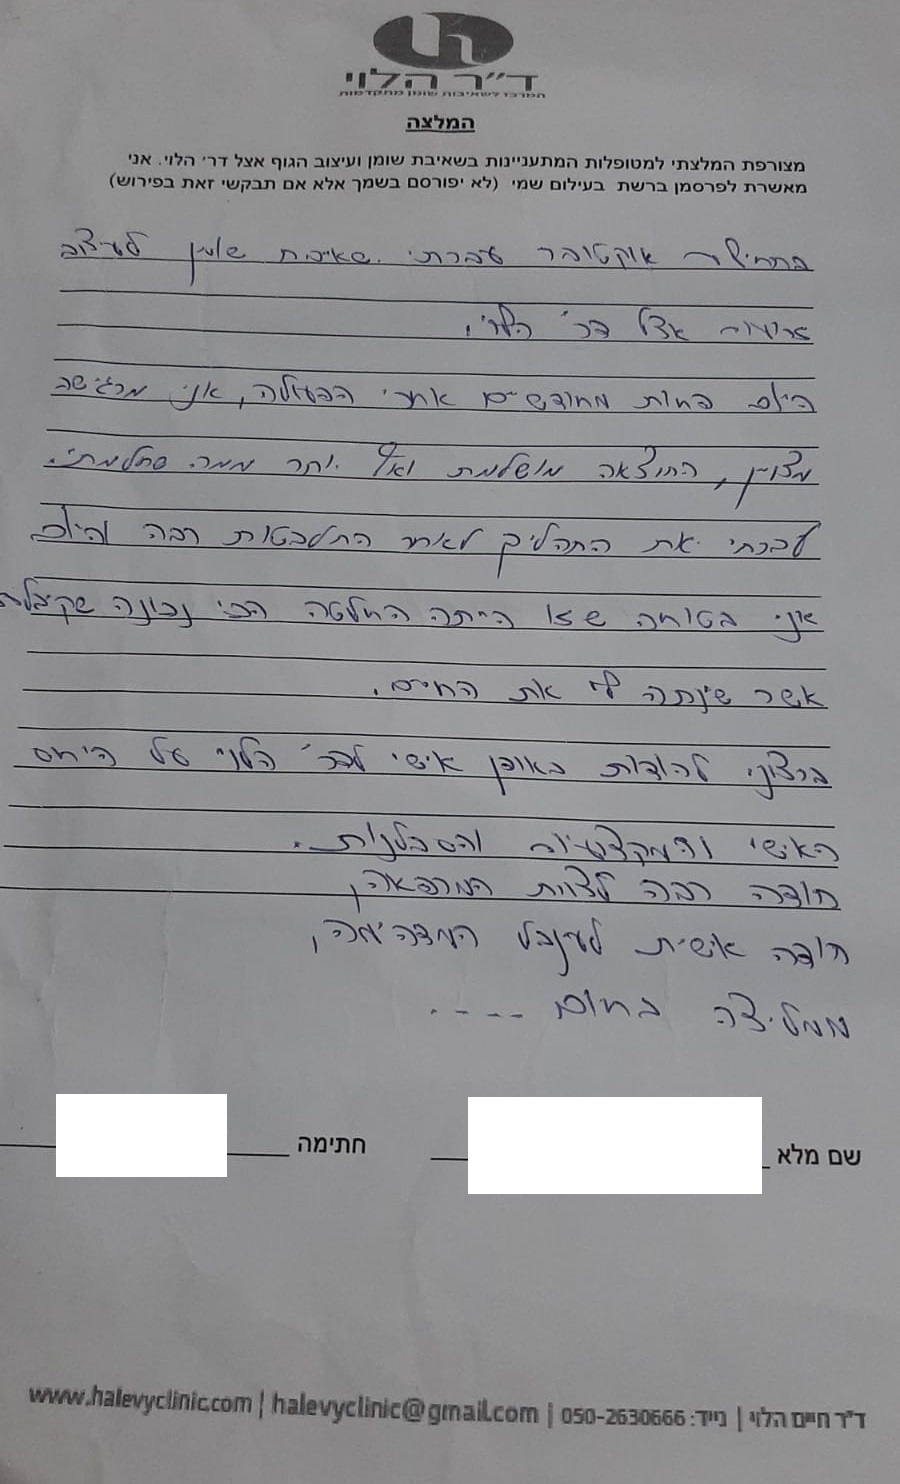 ד"ר הלוי
המרכז לשאיבות שומן מתקדמות
המלצה
מצורפת המלצתי למטופלות המתעניינות בשאיבת שומן ועיצוב הגוף אצל דר' הלוי. אני
מאשרת לפרסמן ברשת בעילום שמי (לא יפורסם בשמך אלא אם תבקשי זאת בפירוש)
בתחילת אוקטובר עברתי שאיבת שומן לעיצוב
זרועות אצל דר' הלוי.
היום פחות מחודשיים אחרי הפעולה, אני מרגישה
מצויין, התוצאה מושלמת ואף יותר ממה שחלמתי.
עברתי את התהליך לאחר התלבטות רבה והיום
אני בטוחה שזו הייתה החלטה הכי נכונה שקיבלתי
אשר שינתה לי את החיים.
ברצוני להודות באופן אישי לדר' הלוי על היחס
האישי והמקצועיות והסבלנות.
תודה רבה לצוות המרפאה,
תודה אישית לענבל המדהימה,
ממליצה בחום ....
שם מלא
חתימה
ד"ר חיים הלוי | נייד: 050-2630666 | halevyclinic@gmail.com | www.halevyclinic.com